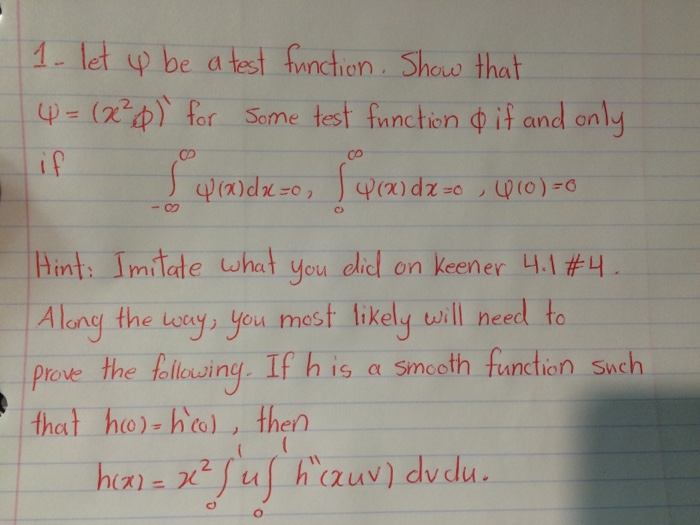 1- let ψ be a test function. Show that
ψ = (x²φ)` for some test function φ if and only
if ∫_{-∞}^{∞} ψ(x)dx=0, ∫_{0}^{∞} ψ(x)dx=0, ψ(0)=0
Hint: Imitate what you did on Keener 4.1 #4.
Along the way, you most likely will need to
prove the following. If h is a smooth function such
that h(0)=h`(0), then
h(x) = x² ∫_{0}^{1} u ∫_{0}^{1} h``(xuv) dvdu.